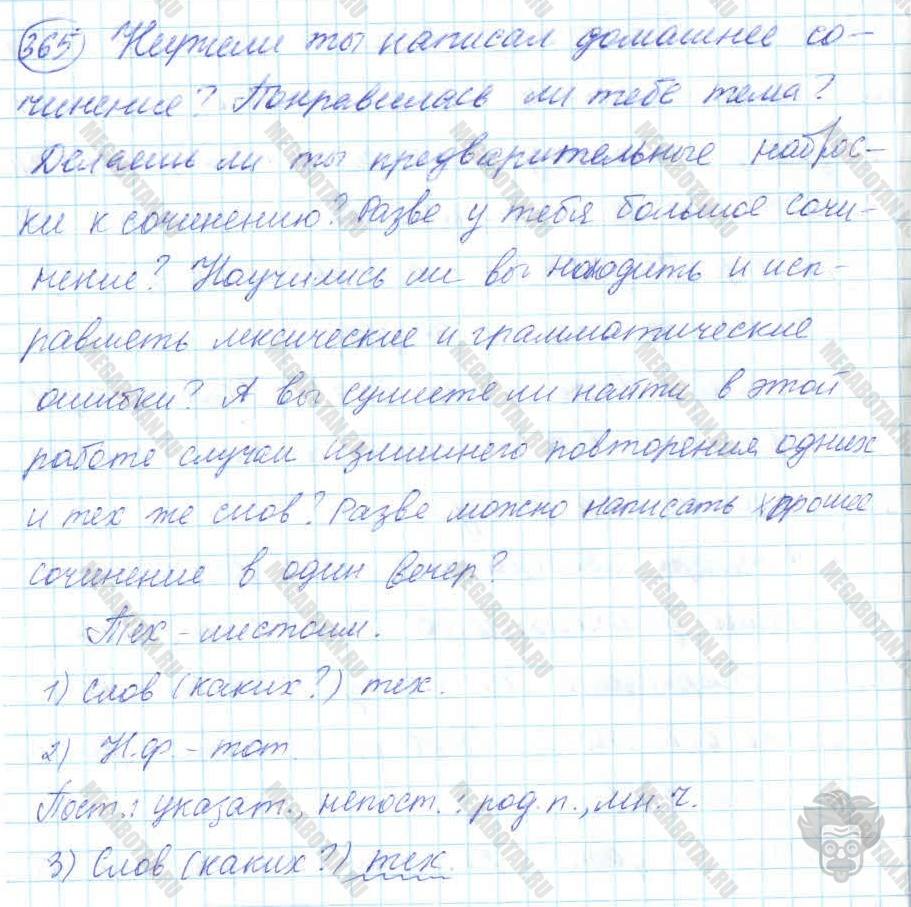 365 Неужели ты написал домашнее со-
чинение? Понравилась ли тебе тема?
Делаешь ли ты предварительные наброс-
ки к сочинению? Разве у тебя большое сочи-
нение? Научились ли вы находить и исп-
равлять лексические и грамматические
ошибки? А вы сумеете ли найти в этой
работе случаи излишнего повторения одних
и тех же слов? Разве можно написать хорошее
сочинение в один вечер?
Тех - местоим.
1) Слов (каких?) тех.
2) Н.ф. - тот.
Пост.: указат., непост.: род.п., мн.ч.
3) Слов (каких?) тех.
MEGABOTAN.RU